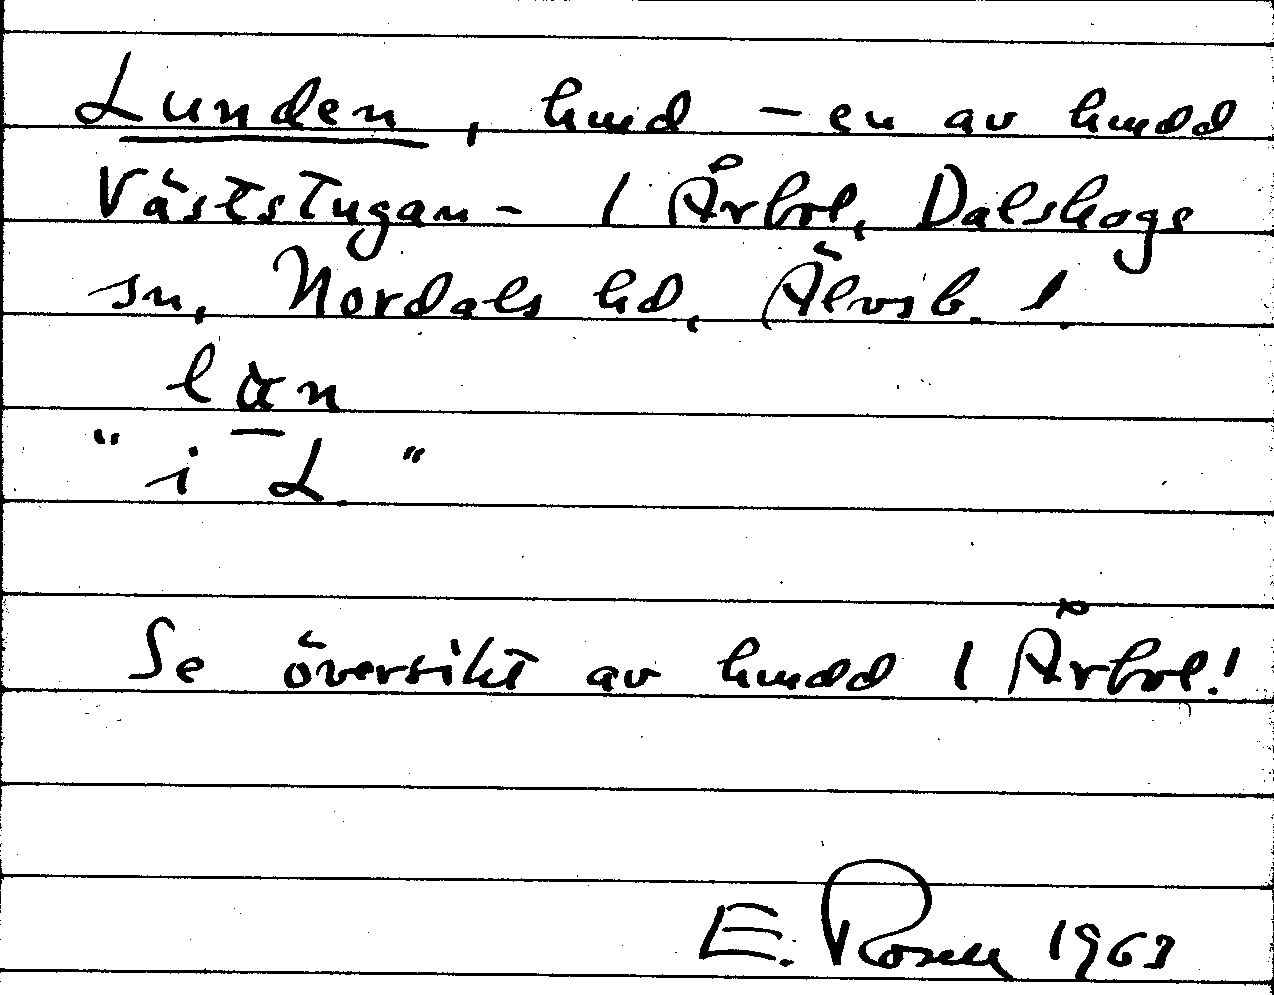 Lunden, hmd – en av hmdd
Väststugan – 1 Årbol, Dalskogs
sn, Nordals hd, Älvsb. l.
lån
"i L."
Se översikt av hmdd 1 Årbol!
E. Rosell 1963